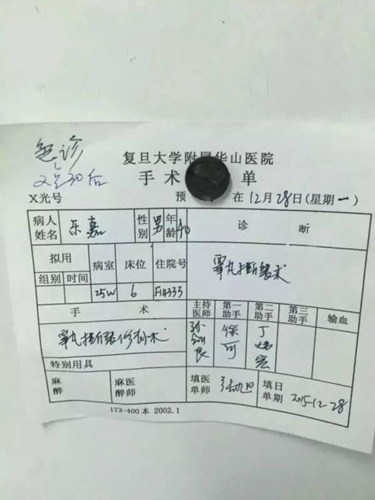 急诊
复旦大学附属华山医院
手术 单
X光号 预 在12月28日(星期一)
病人姓名 乐嘉 性别 男 年龄 40 诊断
拟用 病室 床位 住院号 睾丸扭断 术
组别 时间 25W 6 F14333
手术 主持医师 第一助手 第二助手 第三助手 输血
睾丸扭断 修补术 孙 良 徐可 丁
特别用具
麻醉 麻醉师 填医单师 填日单期 2015-12-28
173-400本 2002.1